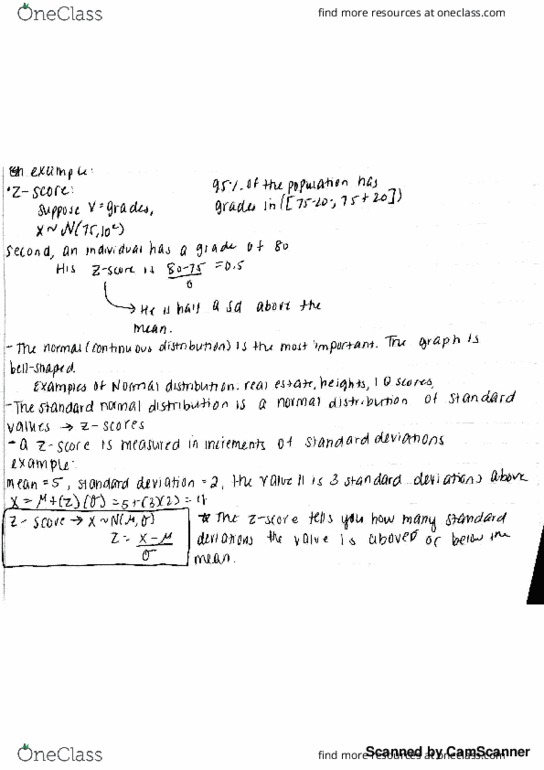 OneClass
find more resources at oneclass.com
example:
•Z-score:
suppose V=grades,
X~N(75,10²)
95% of the population has
grades in ([75-20, 75+20])
second, an individual has a grade of 80
His z-score is 80-75 / σ = 0.5
→ He is half a sd above the
mean.
- The normal (continuous distribution) is the most important. The graph is
bell-shaped.
Examples of Normal distribution. real estate, heights, IQ scores,
- The standard normal distribution is a normal distribution of standard
values → z-scores
- a z-score is measured in increments of standard deviations
example:
mean = 5, standard deviation = 2, the value 11 is 3 standard deviations above
X = μ+(z)(σ) = 5+(3)(2) = 11
Z-score → X~N(μ,σ)
Z = X-μ / σ
* The z-score tells you how many standard
deviations the value is above or below the
mean.
OneClass
find more resources at oneclass.com
Scanned by CamScanner